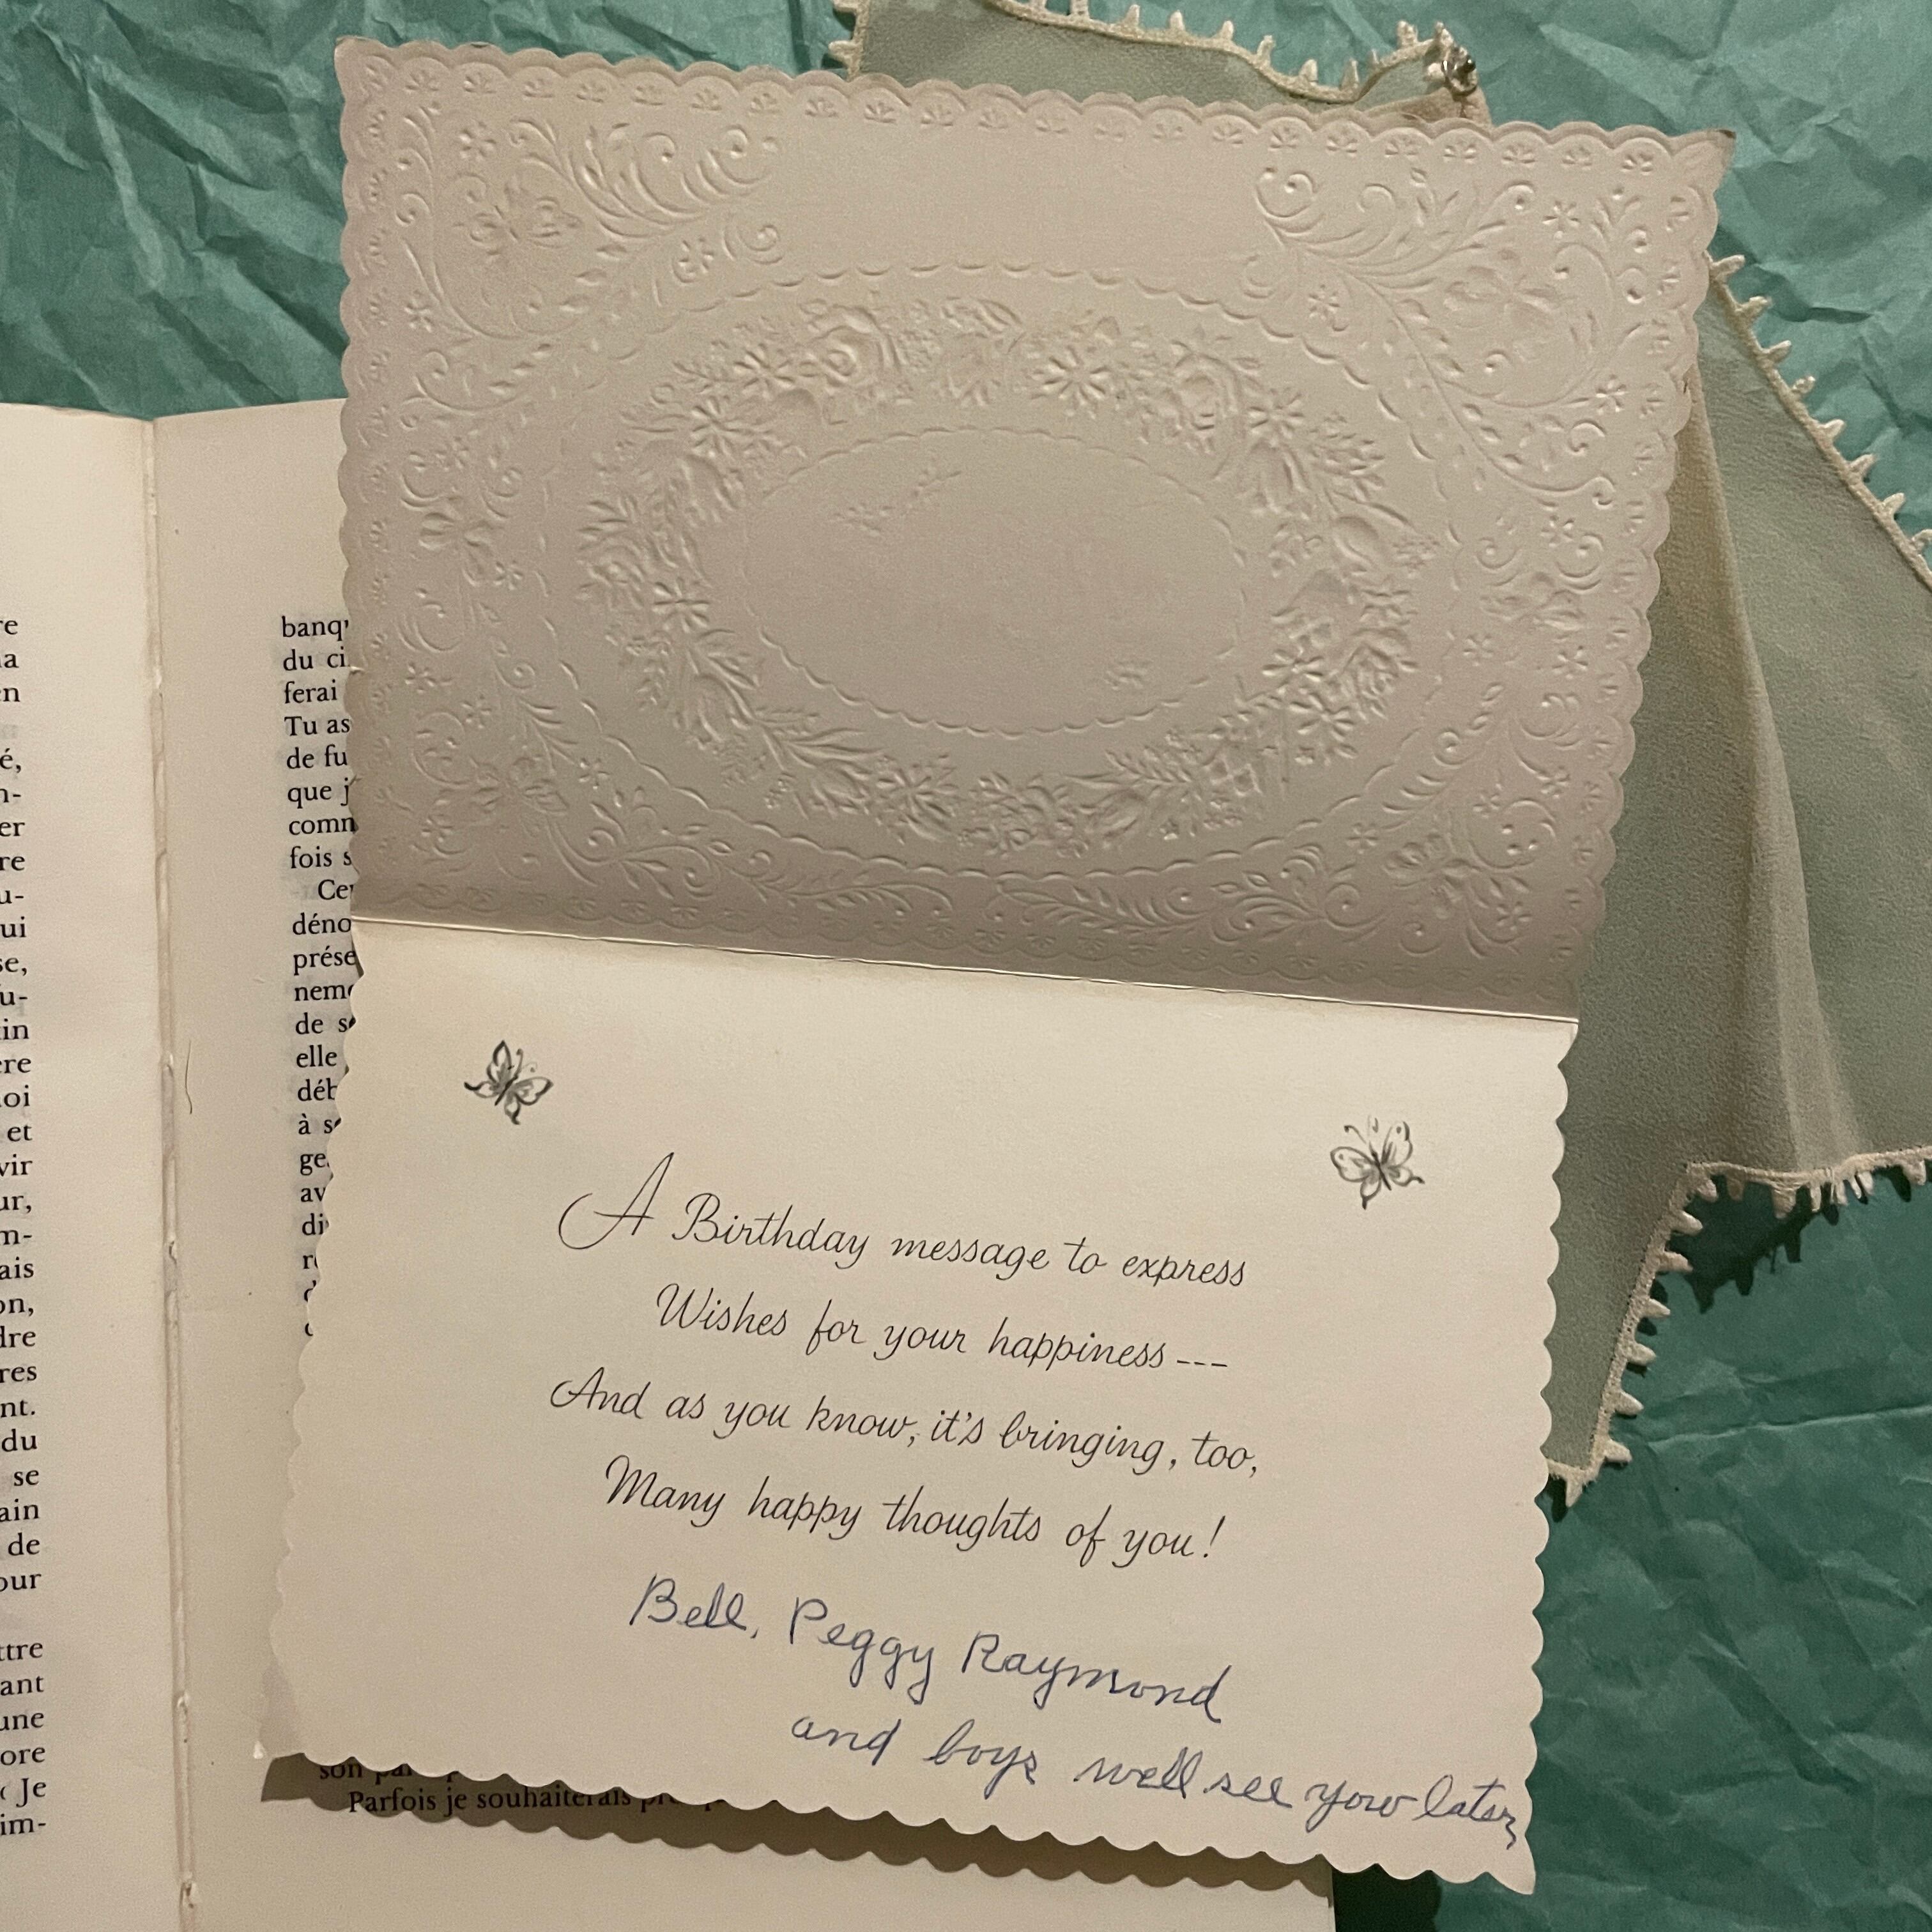 re
a
en
é,
n-
er
re
u-
ui
se,
u-
in
ère
oi
et
vir
ur,
m-
ais
on,
dre
res
nt.
du
se
ain
de
our
ttre
ant
une
ore
Je
im-
banq
du ci
ferai
Tu as
de fu
que j
comm
fois s
Ce
déno
prése
nem
de s
elle
déb
à s
ge
av
di
son
Parfois je souhaiterais
A Birthday message to express
Wishes for your happiness---
And as you know, it's bringing, too,
Many happy thoughts of you!
Bell, Peggy Raymond
and boys well see you later